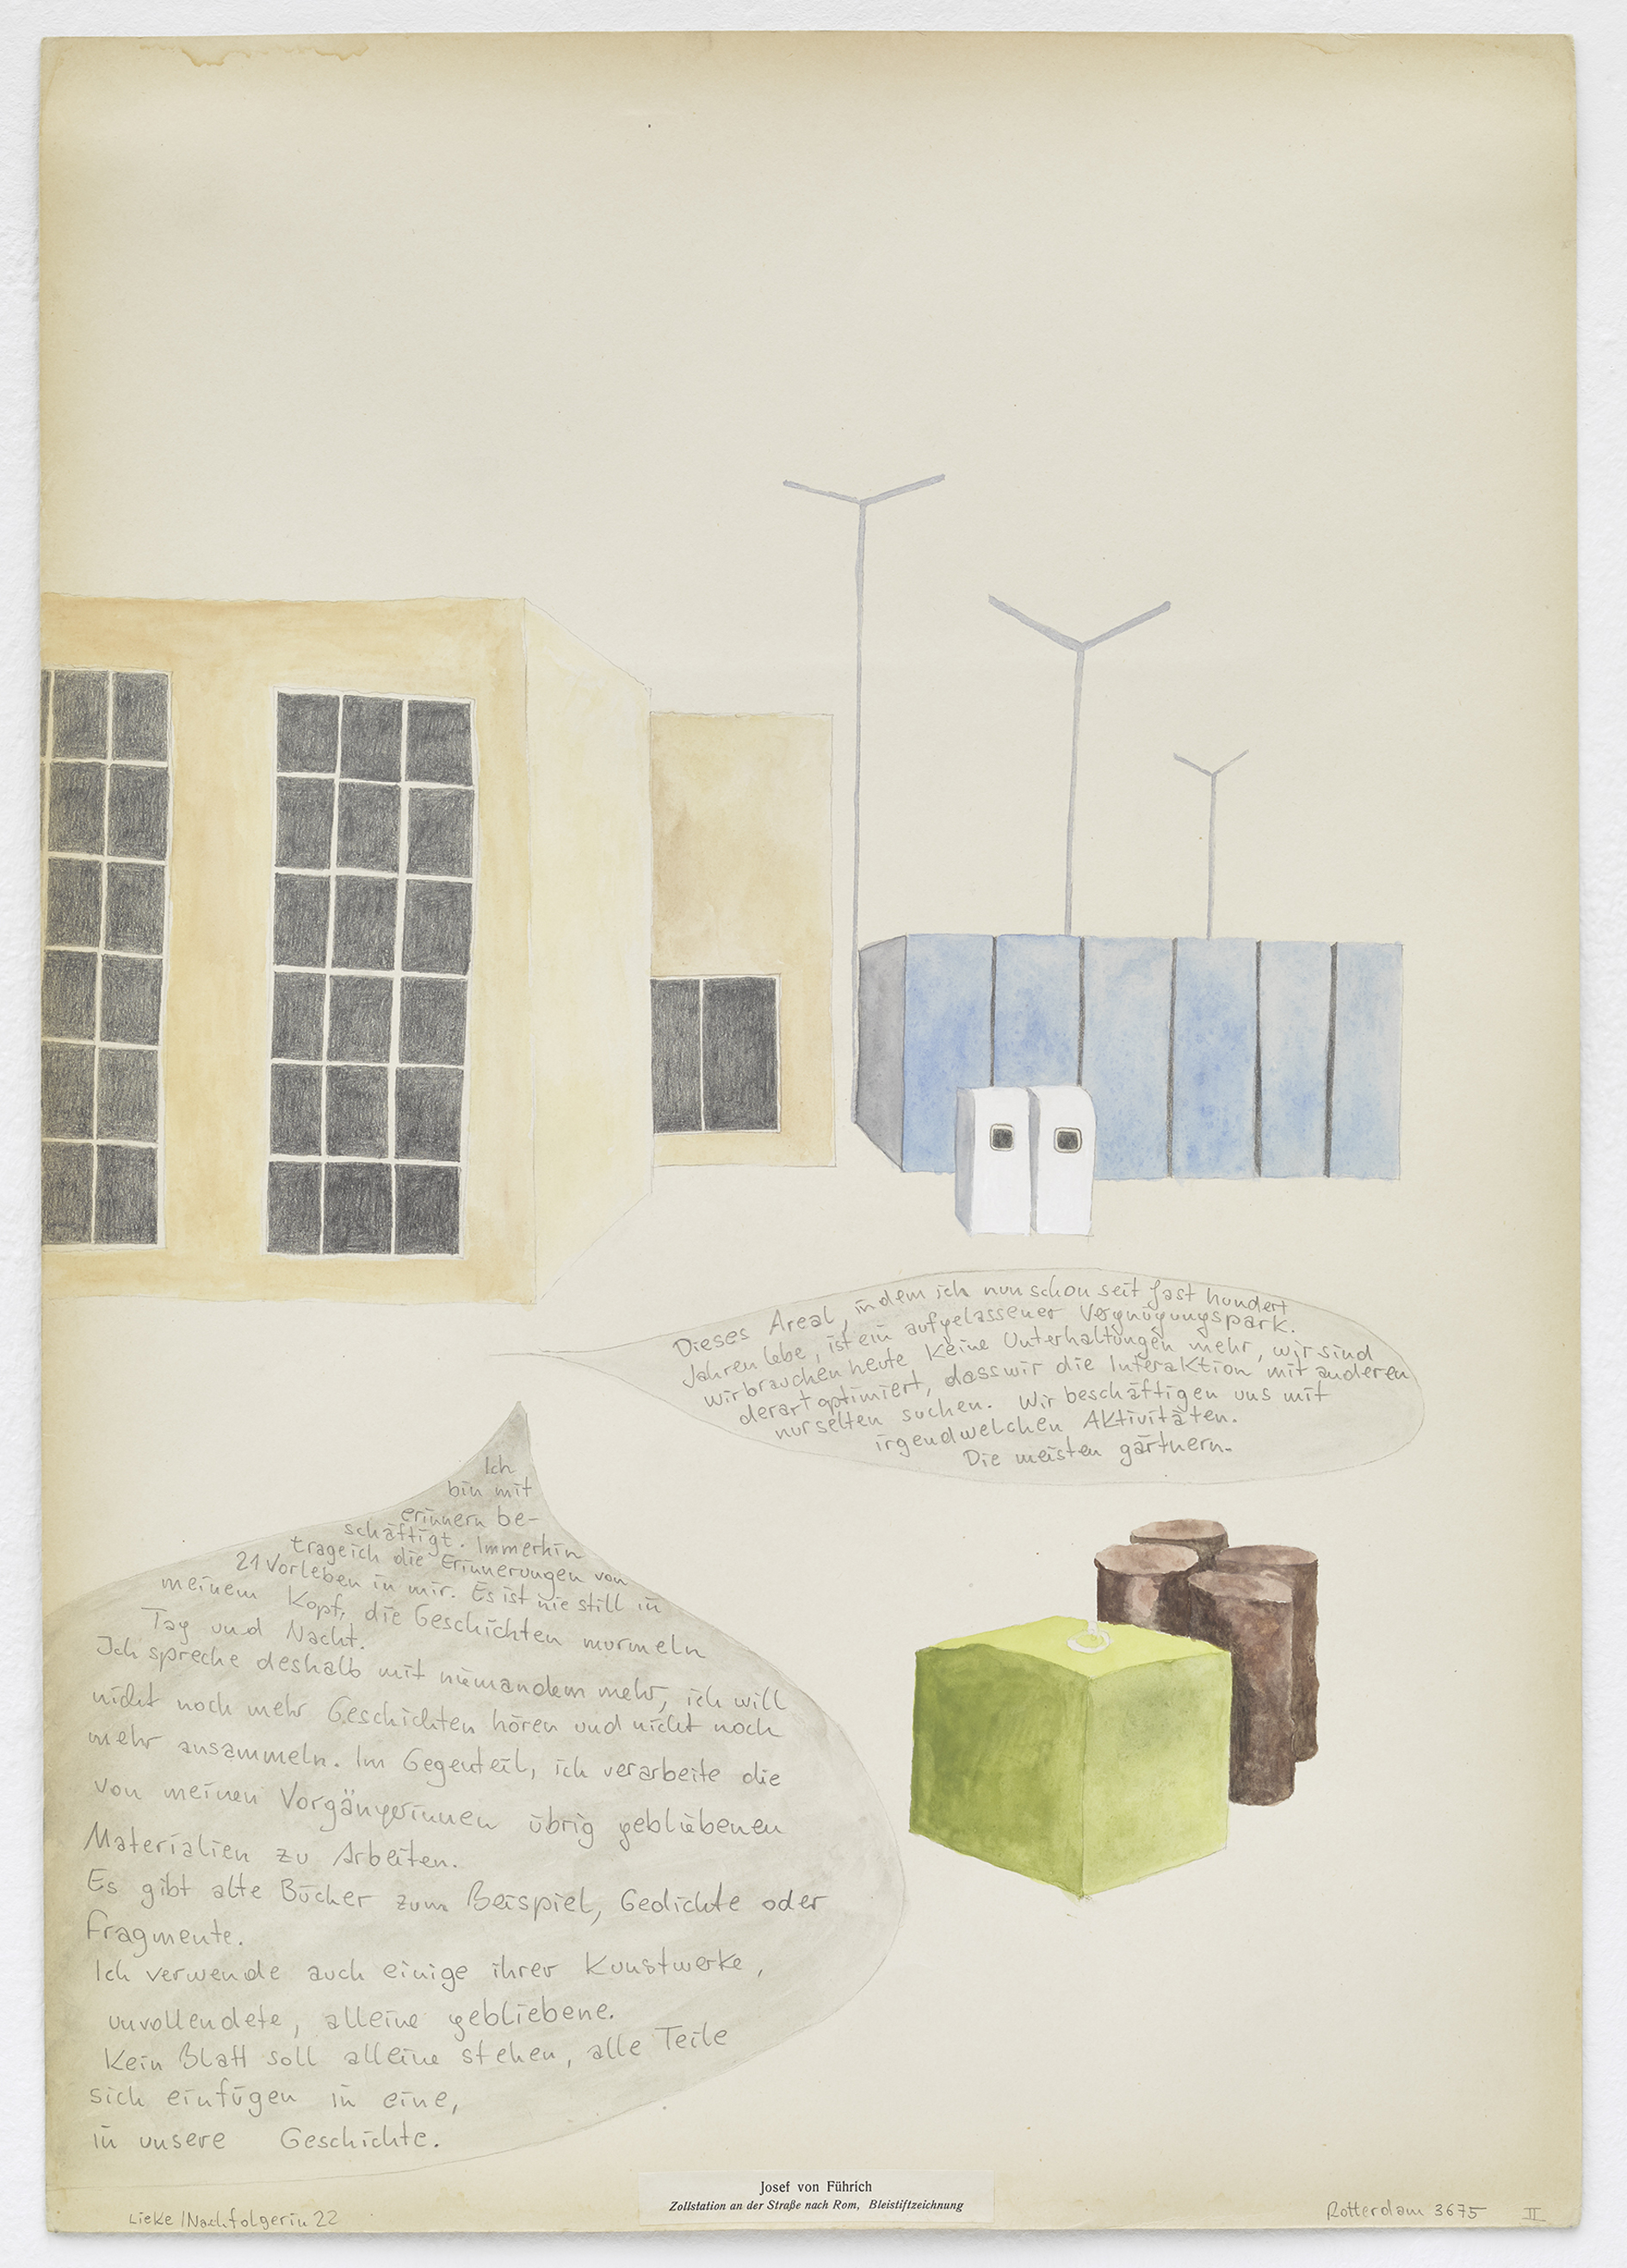 Dieses Areal, in dem ich nun schon seit fast hundert
Jahren lebe, ist ein aufgelassener Vergnügungspark.
wir brauchen heute keine Unterhaltungen mehr, wir sind
derart optimiert, dass wir die Interaktion mit anderen
nur selten suchen. Wir beschäftigen uns mit
irgendwelchen Aktivitäten.
Die meisten gärtnern.
Ich
bin mit
erinnern be-
schäftigt. Immerhin
trage ich die Erinnerungen von
21 Vorleben in mir. Es ist nie still in
meinem Kopf, die Geschichten murmeln
Tag und Nacht.
Ich spreche deshalb mit niemandem mehr, ich will
nicht noch mehr Geschichten hören und nicht noch
mehr ansammeln. Im Gegenteil, ich verarbeite die
von meinen Vorgängerinnen übrig gebliebenen
Materialien zu Arbeiten.
Es gibt alte Bücher zum Beispiel, Gedichte oder
Fragmente.
Ich verwende auch einige ihrer Kunstwerke,
unvollendete, alleine gebliebene.
Kein Blatt soll alleine stehen, alle Teile
sich einfügen in eine,
in unsere Geschichte.
Josef von Führich
Zollstation an der Straße nach Rom, Bleistiftzeichnung
Lieke / Nachfolgerin 22
Rotterdam 3675 II